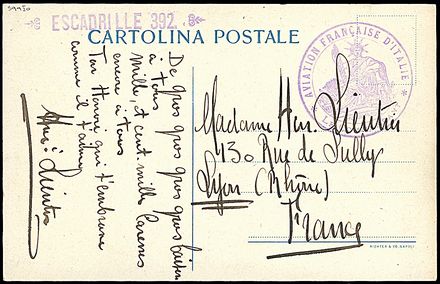 ESCADRILLE 392.
CARTOLINA POSTALE
AVIATION FRANÇAISE D'ITALIE
De gros gros gros gros
à tous
Mille, et cent mille
encore à tous
Ton Henri qui t'embrasse
comme il t'aime
Madame Hen. Lientier
430 Rue de Sully
Lyon (Rhône)
France
RICHTER & Co. NAPOLI